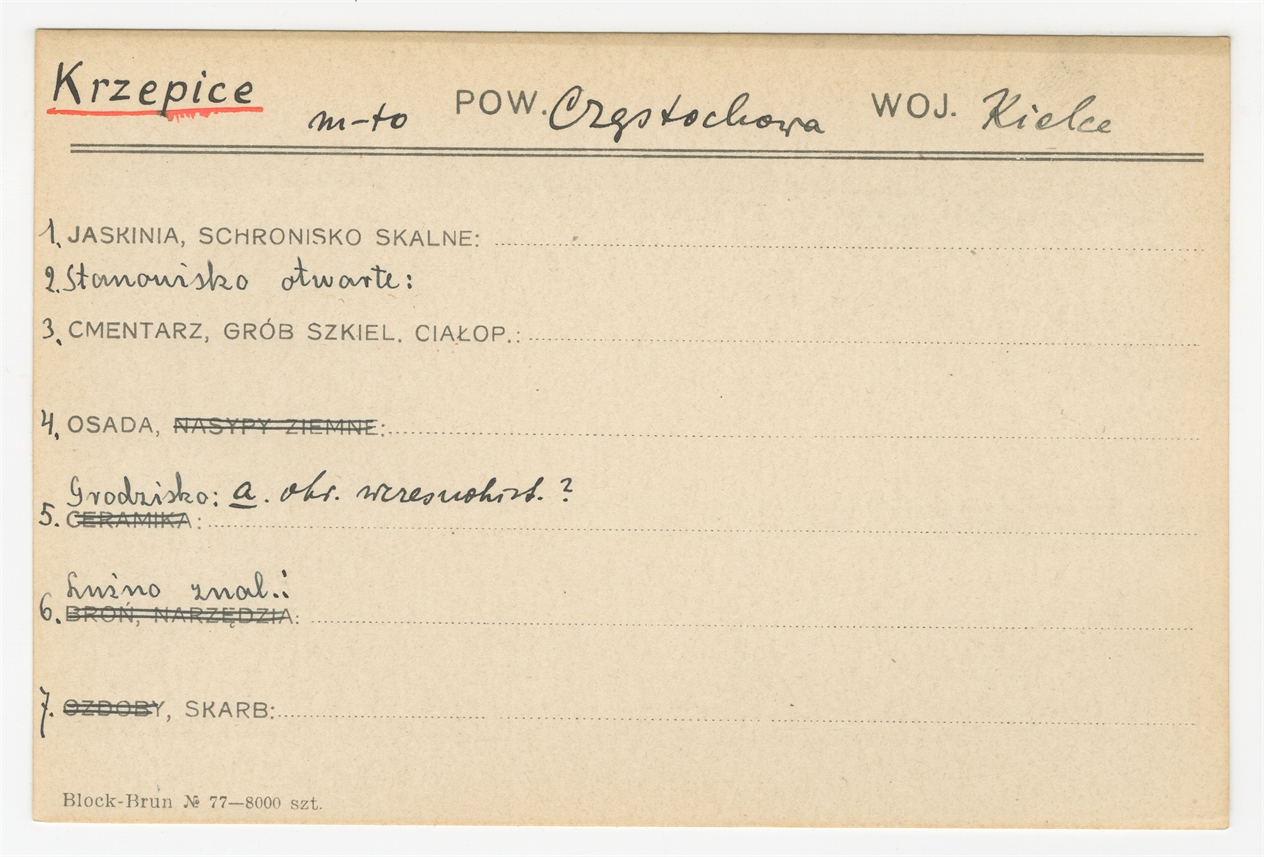 Krzepice m-to POW. Częstochowa WOJ. Kielce
1. JASKINIA, SCHRONISKO SKALNE:
2. Stanowisko otwarte:
3. CMENTARZ, GRÓB SZKIEL. CIAŁOP.:
4. OSADA, NASYPY ZIEMNE:
Grodzisko: a. okr. wczesnohist. ?
5. CERAMIKA:
Luźno znal.:
6. BROŃ, NARZĘDZIA:
7. OZDOBY, SKARB:
Block-Brun № 77—8000 szt.